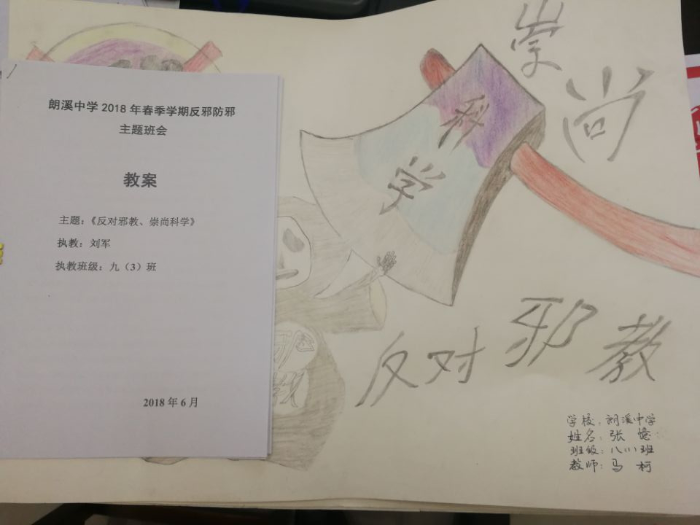 朗溪中学2018年春季学期反邪防邪
主题班会
教案
主题:《反对邪教、崇尚科学》
执教:刘军
执教班级:九（3）班
2018年6月
崇尚
科学
反对邪教
学校:朗溪中学
姓名:张
班级:八(1)班
教师:马柯